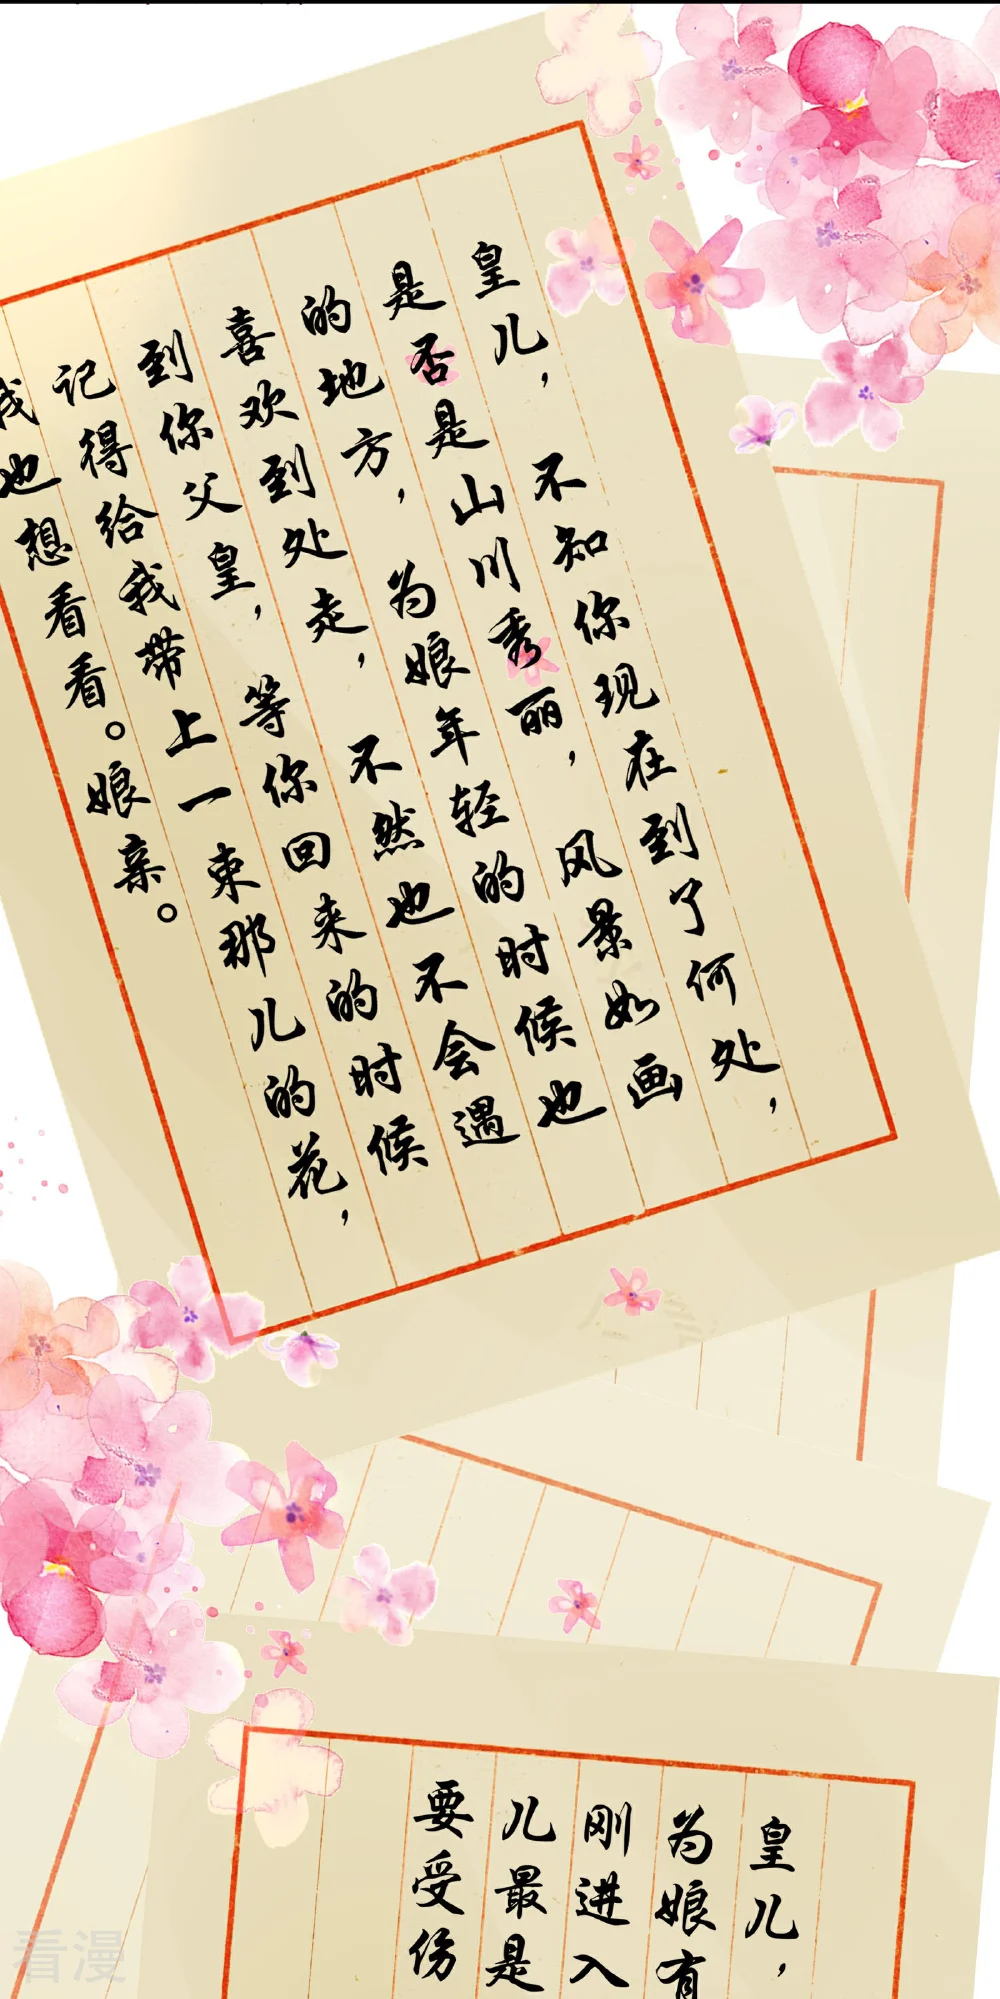 皇儿，不知你现在到了何处，
是否是山川秀丽，风景如画
的地方，为娘年轻的时候也
喜欢到处走，不然也不会遇
到你父皇，等你回来的时候
记得给我带上一束那儿的花，
我也想看看。娘亲。
皇儿，
为娘有
刚进入
儿最是
要受伤
看漫